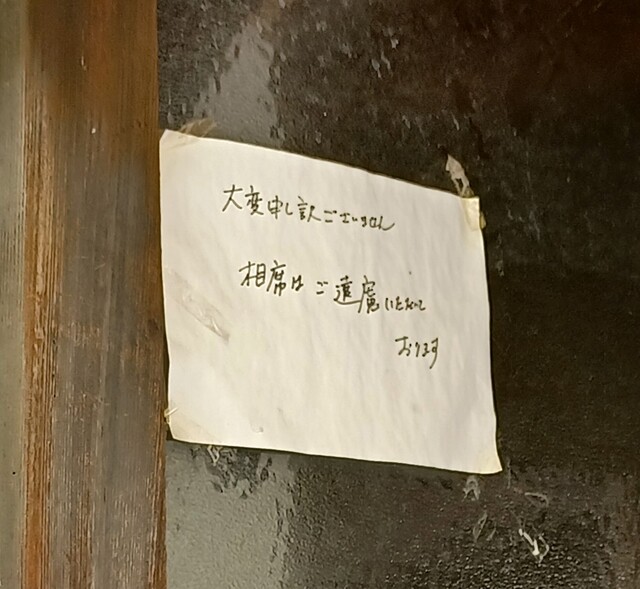 大変申し訳ございません
相席はご遠慮いただいて
おります